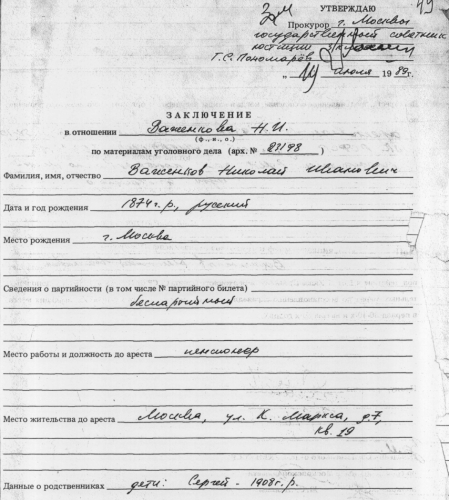 УТВЕРЖДАЮ
Прокурор г. Москвы
государственный советник
юстиции 3 класса
Г.С. Пономарев
„ 14 июля 1989г.
ЗАКЛЮЧЕНИЕ
в отношении Важенкова Н.И.
(ф., и., о.)
по материалам уголовного дела (арх. № 27198 )
Фамилия, имя, отчество Важенков Николай Иванович
Дата и год рождения 1874 г.р., русский
Место рождения г. Москва
Сведения о партийности (в том числе № партийного билета)
беспартийный
Место работы и должность до ареста пенсионер
Место жительства до ареста Москва, ул. К. Маркса, д 7,
кв. 29
Данные о родственниках дети: Сергей - 1908 г.р.